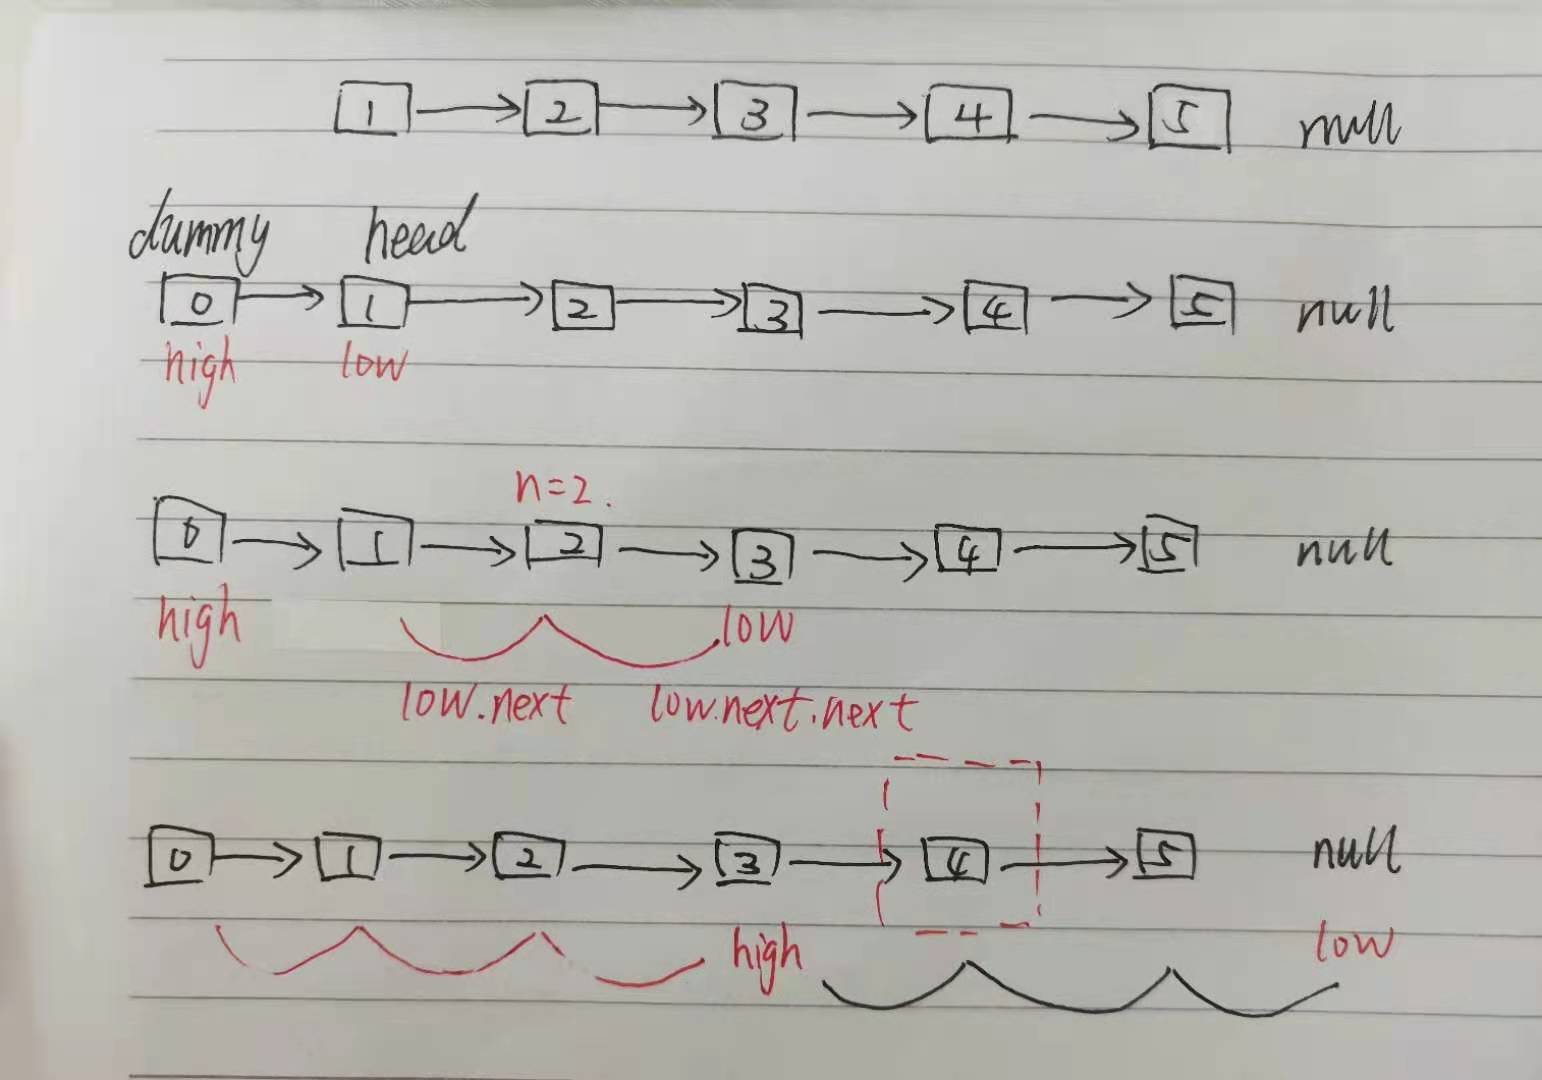 1 2 3 4 5 null
dummy head
0 1 2 3 4 5 null
high low
n=2.
0 1 2 3 4 5 null
high low
low.next low.next.next
0 1 2 3 4 5 null
high low